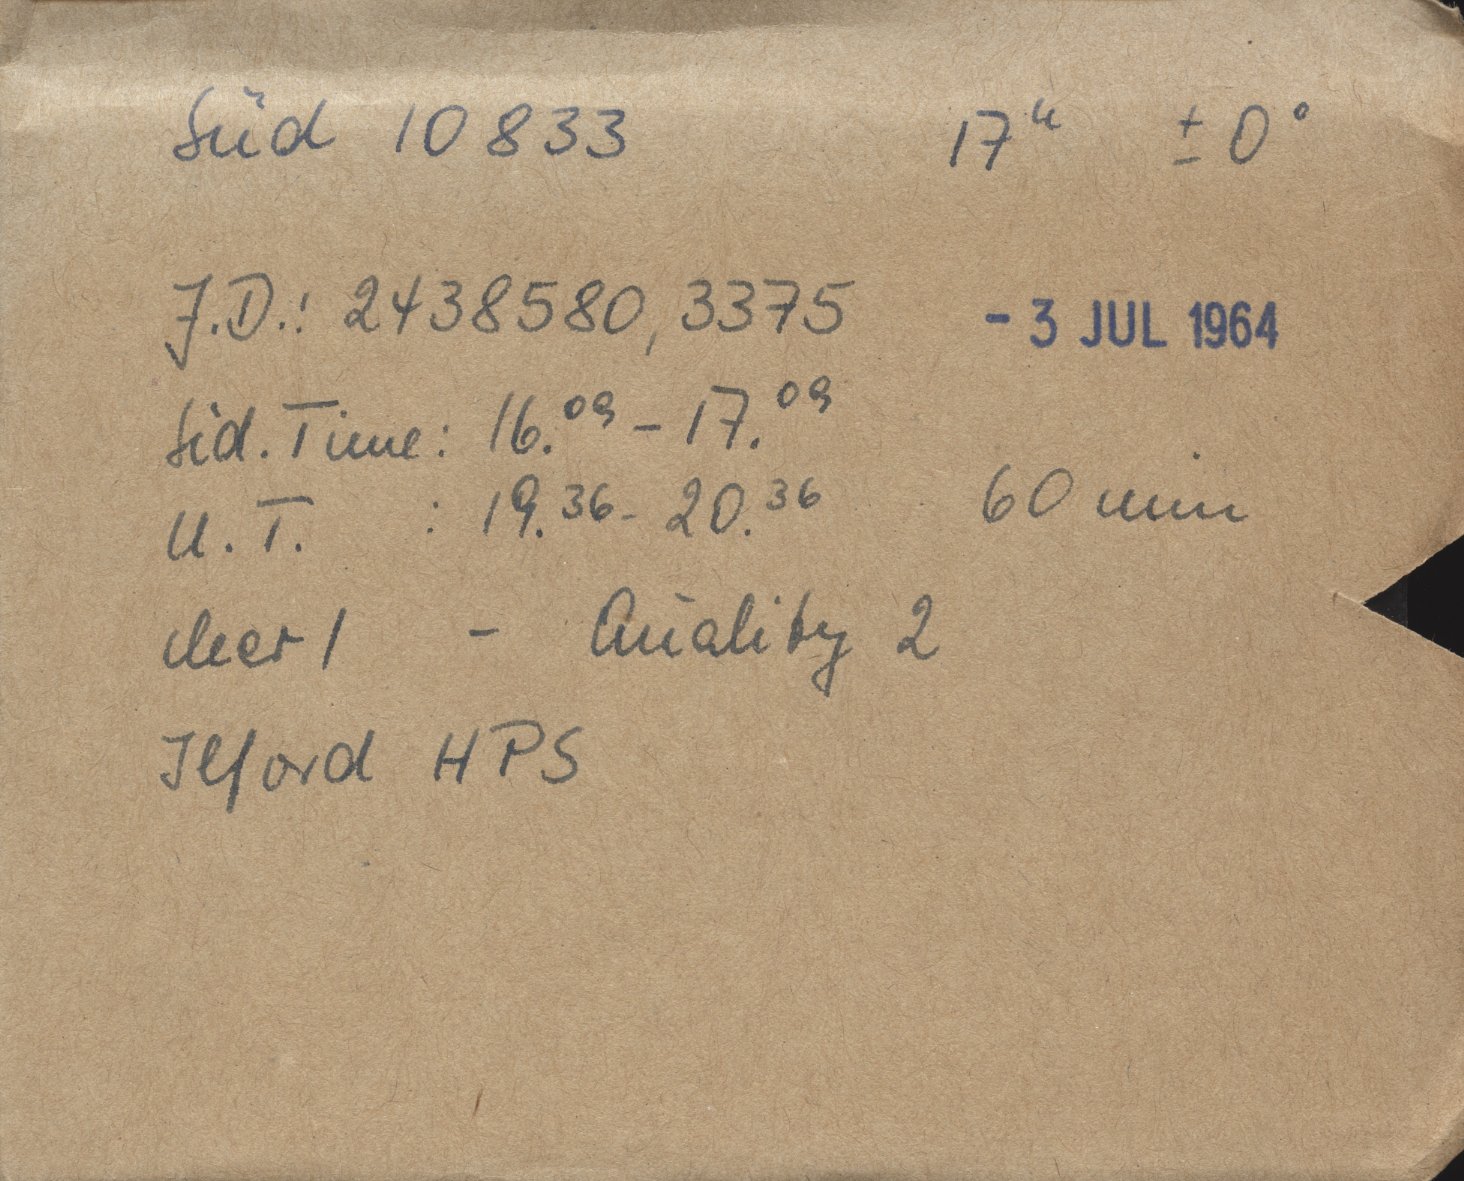 Süd 10833 17ʰ ± 0°
J.D.: 2438580,3375 - 3 JUL 1964
Sid. Time: 16.⁰⁹ - 17.⁰⁹
U. T. : 19.³⁶ - 20.³⁶ 60 min
clear 1 - Quality 2
Ilford HPS